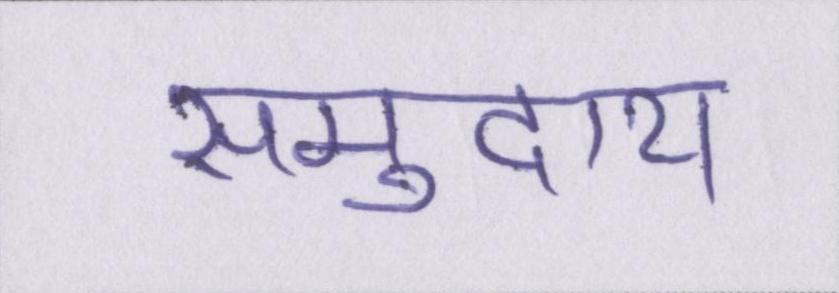 समुदाय